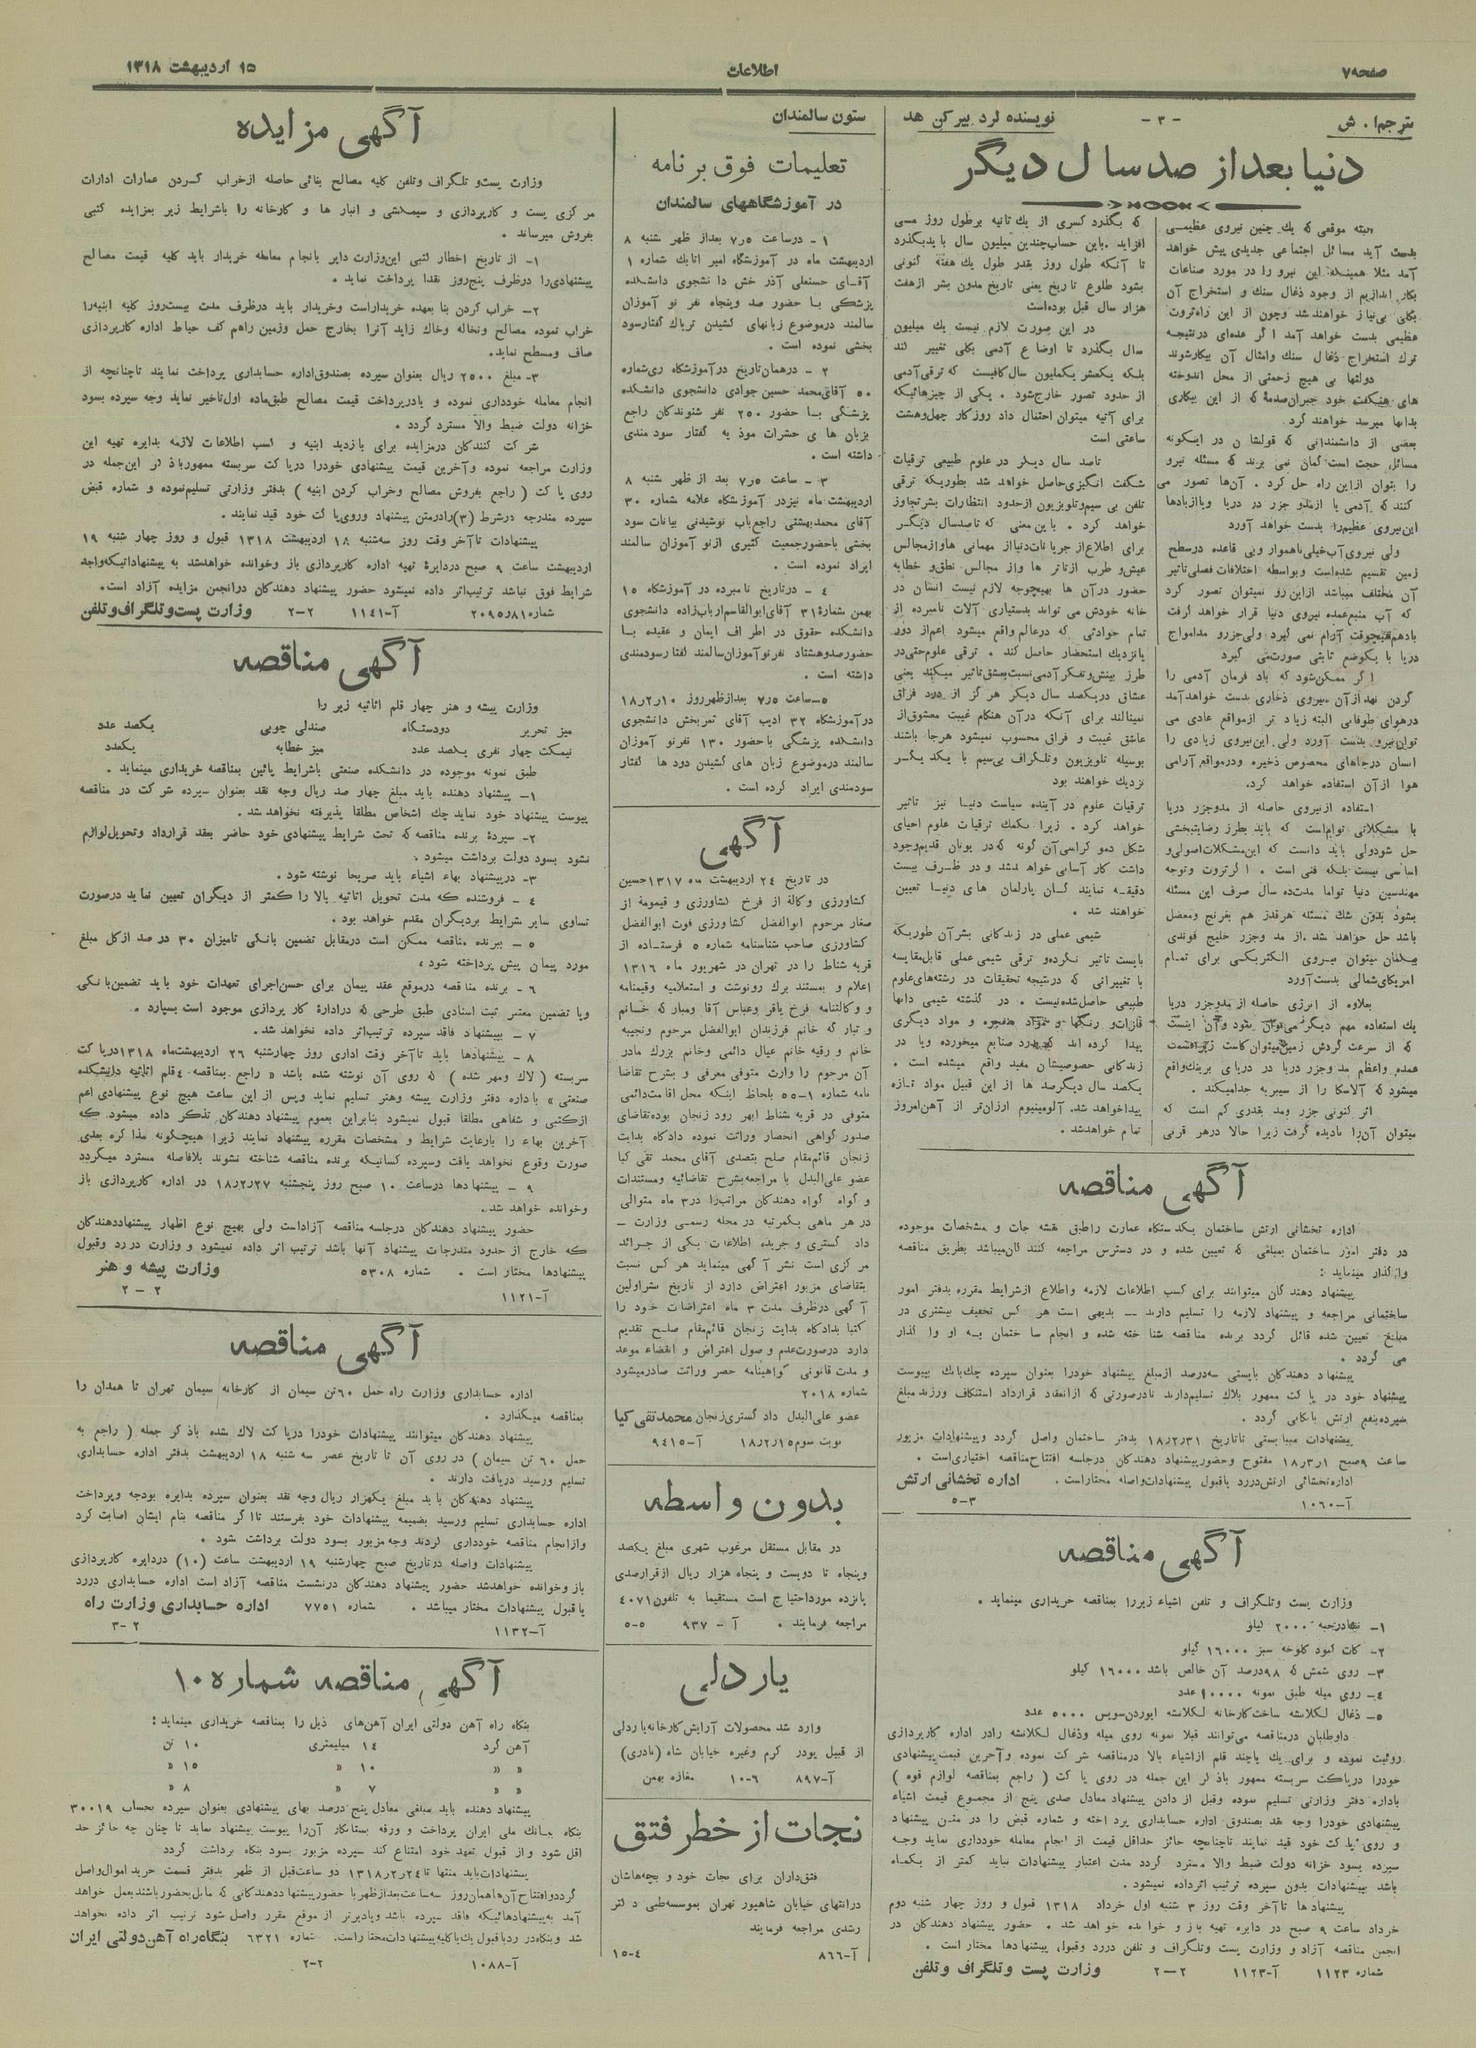 صفحه۷
اطلاعات
۱۵ اردیبهشت ۱۳۱۸
مترجم ا. ش
- ۳ -
نویسنده لرد بیرکن هد
دنیا بعد از صد سال دیگر
البته موقعی که یك چنین نیروی عظیمی
بدست آید مسائل اجتماعی جدیدی پیش خواهد
آمد مثلا همینکه این نیرو را در مورد صناعات
بکار اندازیم از وجود ذغال سنك و استخراج آن
بکلی بی‌نیاز خواهند شد وچون از این راه ثروت
عظیمی بدست خواهد آمد اگر عده‌ای درنتیجه
ترك استخراج ذغال سنك وامثال آن بیکارشوند
دولتها بی هیچ زحمتی از محل اندوخته
های هنگفت خود جبران صدمهٔ که از این بیکاری
بدانها میرسد خواهند کرد.
بعضی از دانشمندانی که قولشان در اینگونه
مسائل حجت است گمان نمی برند که مسئله نیرو
را بتوان ازاین راه حل کرد . آن‌ها تصور می
کنند که آدمی یا ازمدو جزر در دریا ویاازبادها
این‌نیروی عظیم‌را بدست خواهد آورد
ولی نیروی آب خیلی ناهموار وبی قاعده درسطح
زمین تقسیم شده‌است وبواسطه اختلافات فصلی تاثیر
آن مختلف میباشد ازاین‌رو نمیتوان تصور کرد
که آب منبع عمده نیروی دنیا قرار خواهد گرفت
بادهم هیچوقت آرام نمی گیرد ولی جزرو مدامواج
دریا با یکوضع ثابتی صورت‌می گیرد
اگر ممکن شود که باد فرمان آدمی را
گردن نهد ازآن نیروی ذخاری بدست خواهد آمد
درهوای طوفانی البته زیاد تر ازمواقع عادی می
توان‌نیرو بدست آورد ولی این‌نیروی زیادی را
انسان درجاهای مخصوص ذخیره ودرمواقع آرامی
هوا از آن استفاده خواهد کرد.
استفاده ازنیروی حاصله از مدوجزر دریا
با مشکلاتی توام‌است که باید بطرز رضایتبخشی
حل شودولی باید دانست که این‌مشکلات اصولی و
اساسی نیست بلکه فنی است . اگر ثروت وتوجه
مهندسین دنیا تواما مدت‌ده سال صرف این مسئله
بشود بدون شك مسئله هرقدر هم بغرنج ومعضل
باشد حل خواهد شد . از مد وجزر خلیج فوندی
بیگمان میتوان نیروی الکتریکی برای تمام
امریکای‌شمالی بدست آورد
بعلاوه از انرژی حاصله از مدوجزر دریا
یك استفاده مهم دیگر می‌توان نمود و آن اینست
که از سرعت گردش زمین میتوان کاست زیراقسمت
عمده واعظم مد وجزر دریا در دریای برینك‌واقع
میشود که آلاسکا را از سیبریه جدامیکند .
اثر کنونی جزر ومد بقدری کم است که
میتوان آن‌را نادیده گرفت زیرا حالا درهر قرنی
که بگذرد کسری از یك ثانیه برطول روز می
افزاید. باین حساب چندین میلیون سال بایدبگذرد
تا آنکه طول روز بقدر طول یك هفته کنونی
بشود طلوع تاریخ یعنی تاریخ مدون بشر ازهفت
هزار سال قبل بوده‌است
در این صورت لازم نیست یك میلیون
سال بگذرد تا اوضاع آدمی بکلی تغییر کند
بلکه یکعشر یکملیون سال کافیست که ترقی آدمی
از حدود تصور خارج شود . یکی از چیزهائیکه
برای آتیه میتوان احتمال داد روزکار چهل‌وهشت
ساعتی است
تاصد سال دیگر در علوم طبیعی ترقیات
شگفت انگیزی حاصل خواهد شد بطوریکه ترقی
تلفن بی سیم وتلویزیون ازحدود انتظارات بشر تجاوز
خواهد کرد . باین معنی که تاصدسال دیگر
برای اطلاع از جریانات دنیااز مهمانی هاوازمجالس
عیش و طرب ازتاتر ها واز مجالس نطق و خطابه
حضور درآن ها بهیچوجه لازم نیست انسان در
خانه خودش می تواند بدستیاری آلات نامبرده از
تمام حوادثی که درعالم واقع میشود اعم‌از دور
یانزدیك استحضار حاصل کند . ترقی علوم حتی در
طرز بینش وتفکر آدمی نسبت‌بعشق تاثیر میکند یعنی
عشاق دریکصد سال دیگر هرگز از درد فراق
نمینالند برای آنکه درآن هنگام غیبت معشوق از
عاشق غیبت و فراق محسوب نمیشود هرجا باشند
بوسیله تلویزیون وتلگراف بی‌سیم با یکدیگر
نزدیك خواهند بود
ترقیات علوم در آینده سیاست دنیا نیز تاثیر
خواهد کرد . زیرا بکمك ترقیات علوم احیای
شکل دمو کراسی آن گونه که در یونان قدیم‌وجود
داشت کار آسانی خواهد شد و در ظرف بیست
دقیقه نمایندگان پارلمان های دنیا تعیین
خواهند شد .
شیمی عملی در زندگانی بشر آن طوریکه
بایست تاثیر نکرده‌و ترقی شیمی عملی قابل‌مقایسه
با تغییراتی که درنتیجه تحقیقات در رشته‌های علوم
طبیعی حاصل‌شده‌نیست . در گذشته شیمی دانها
فلزات و رنگها و مواد منفجره و مواد دیگری
پیدا کرده اند که بدرد صنایع میخورده ویا در
زندگانی خصوصیشان مفید واقع میشده است .
یکصد سال دیگر صد ها از این قبیل مواد تازه
پیداخواهد شد. آلومینیوم ارزان‌تر از آهن‌امروز
تمام خواهدشد.
آگهی مناقصه
اداره تخشائی ارتش ساختمان یکدستگاه عمارت راطبق نقشه جات و مشخصات موجوده
در دفتر امور ساختمان بمبلغی که تعیین شده و در دسترس مراجعه کنندگان‌میباشد بطریق مناقصه
واگذار مینماید :
پیشنهاد دهندگان میتوانند برای کسب اطلاعات لازمه واطلاع ازشرایط مقرره بدفتر امور
ساختمانی مراجعه و پیشنهاد لازمه را تسلیم دارند — بدیهی است هر کس تخفیف بیشتری در
مبلغ تعیین شده قائل گردد برنده مناقصه شناخته شده و انجام ساختمان به او واگذار
می گردد .
پیشنهاد دهندگان بایستی سه‌درصد ازمبلغ پیشنهاد خودرا بعنوان سپرده چك‌بانك بپیوست
پیشنهاد خود در پاکت ممهور بلاك تسلیم‌دارند تادرصورتی که ازانعقاد قرارداد استنکاف ورزند مبلغ
سپرده‌بنفع ارتش بایگانی گردد .
پیشنهادات میبایستی تاتاریخ ۱۸٫۲٫۳۱ بدفتر ساختمان واصل گردد وپیشنهادات مزبور
ساعت ۹صبح ۱۸٫۳٫۱ مفتوح وحضورپیشنهاد دهندگان درجلسه افتتاح‌مناقصه اختیاری‌است .
اداره‌تخشائی ارتش‌دررد یاقبول پیشنهادات‌واصله مختاراست . اداره تخشائی ارتش
آ—۱۰۶۰ ۳—۵
آگهی مناقصه
وزارت پست وتلگراف و تلفن اشیاء زیررا بمناقصه خریداری مینماید .
۱— نشادرجبه ۲۰۰۰ کیلو
۲— کات کبود کلوخه سبز ۱۶۰۰۰ کیلو
۳— روی شمش که ۹۸درصد آن خالص باشد ۱۶۰۰۰ کیلو
۴— روی میله طبق نمونه ۱۰۰۰۰ عدد
۵— ذغال لکلانشه ساخت‌کارخانه لکلانشه ایوردن‌سویس ۵۰۰۰ عدد
داوطلبان درمناقصه می‌توانند قبلا نمونه روی میله وذغال لکلانشه رادر اداره کارپردازی
روئیت نموده و برای یك یاچند قلم ازاشیاء بالا درمناقصه شرکت نموده وآخرین قیمت‌پیشنهادی
خودرا درپاکت سربسته ممهور باذکر این جمله در روی پاکت ( راجع بمناقصه لوازم قوه )
باداره دفتر وزارتی تسلیم نموده وقبل از دادن پیشنهاد معادل صدی پنج از مجموع قیمت اشیاء
پیشنهادی خودرا وجه نقد بصندوق اداره حسابداری پرداخته و شماره قبض را در متن پیشنهاد
و روی پاکت خود قید نمایند تاچنانچه حائز حداقل قیمت از انجام معامله خودداری نماید وجه
سپرده بسود خزانه دولت ضبط والا مسترد گردد مدت اعتبار پیشنهادات نباید کمتر از یکماه
باشد بپیشنهادات بدون سپرده ترتیب اثرداده نمیشود .
پیشنهادها تاآخر وقت روز ۳ شنبه اول خرداد ۱۳۱۸ قبول و روز چهار شنبه دوم
خرداد ساعت ۹ صبح در دایره تهیه باز و خوانده خواهد شد . حضور پیشنهاد دهندگان در
انجمن مناقصه آزاد و وزارت پست وتلگراف و تلفن دررد وقبول پیشنهادها مختار است .
شماره ۱۱۲۳ آ—۱۱۲۳ ۲—۲ وزارت پست وتلگراف وتلفن
ستون سالمندان
تعلیمات فوق برنامه
در آموزشگاههای سالمندان
۱— درساعت ۷٫۵ بعداز ظهر شنبه ۸
اردیبهشت ماه در آموزشگاه امیر اتابك شماره ۱
آقای حسنعلی آذر خش دانشجوی دانشکده
پزشکی با حضور صد وپنجاه نفر نو آموزان
سالمند درموضوع زیانهای کشیدن تریاك گفتارسود
بخشی نموده است .
۲ — درهمان‌تاریخ درآموزشگاه ری‌شماره
۵۰ آقای‌محمد حسین جوادی دانشجوی دانشکده
پزشکی با حضور ۲۵۰ نفر شنوندگان راجع
بزیان های حشرات موذیه گفتار سودمندی
داشته است .
۳ — ساعت ۷٫۵ بعد از ظهر شنبه ۸
اردیبهشت ماه نیزدر آموزشگاه علامه شماره ۳۰
آقای محمدبهشتی راجع‌باب نوشیدنی بیانات سود
بخشی باحضورجمعیت کثیری ازنو آموزان سالمند
ایراد نموده است .
۴ — درتاریخ نامبرده در آموزشگاه ۱۵
بهمن شماره۳۱ آقای‌ابوالقاسم ارباب‌زاده دانشجوی
دانشکده حقوق در اطراف ایمان و عقیده با
حضورصدوهشتاد نفرنوآموزان سالمند گفتارسودمندی
داشته است .
۵— ساعت ۷٫۵ بعدازظهرروز ۱۸٫۲٫۱۰
درآموزشگاه ۳۲ ادیب آقای ثمربخش دانشجوی
دانشکده پزشکی باحضور ۱۳۰ نفرنو آموزان
سالمند درموضوع زیان های کشیدن دودها گفتار
سودمندی ایراد کرده است .
آگهی
در تاریخ ۲۴ اردیبهشت ماه ۱۳۱۷حسین
کشاورزی وکالة از فرخ کشاورزی و قیمومة از
صغار مرحوم ابوالفضل کشاورزی فوت ابوالفضل
کشاورزی صاحب شناسنامه شماره ۵ فرستاده از
قریه شناط را در تهران در شهریور ماه ۱۳۱۶
اعلام و بمستند برك رونوشت و استعلامیه وقیمنامه
و وکالتنامه فرخ باقر وعباس آقا ومبار که خانم
و تبارگه خانم فرزندان ابوالفضل مرحوم ونجیبه
خانم و رقیه خانم عیال دائمی وخانم بزرك مادر
آن مرحوم را وارث متوفی معرفی و بشرح تقاضا
نامه شماره ۱—۵۵ بلحاظ اینکه محل اقامت‌دائمی
متوفی در قریه شناط ابهر رود زنجان بوده‌تقاضای
صدور گواهی انحصار وراثت نموده دادگاه بدایت
زنجان قائم‌مقام صلح بتصدی آقای محمد تقی کیا
عضو علی‌البدل با مراجعه‌بشرح تقاضائیه ومستندات
و گواه گواه دهندگان مراتب‌را در۳ ماه متوالی
در هر ماهی یکمرتبه در مجله رسمی وزارت —
داد گستری و جریده اطلاعات یکی از جرائد
مرکزی است نشر آگهی مینماید هر کس نسبت
بتقاضای مزبور اعتراض دارد از تاریخ نشراولین
آگهی درظرف مدت ۳ ماه اعتراضات خود را
کتبا بدادگاه بدایت زنجان قائم‌مقام صلح تقدیم
دارد درصورت‌عدم وصول اعتراض و انقضاء موعد
و مدت قانونی گواهینامه حصر وراثت صادرمیشود
شماره ۲۰۱۸
عضو علی‌البدل دادگستری‌زنجان محمدتقی کیا
نوبت سوم ۱۸٫۲٫۱۵ آ—۹۴۱۵
بدون واسطه
در مقابل مستقل مرغوب شهری مبلغ یکصد
وپنجاه تا دویست و پنجاه هزار ریال ازقرارصدی
پانزده مورداحتیاج است مستقیما به تلفون۴۰۷۱
مراجعه فرمایند . آ — ۹۳۷ ۵—۵
یاردلی
وارد شد محصولات آرایش‌کارخانه‌یاردلی
از قبیل پودر کرم وغیره خیابان شاه (نادری)
آ—۸۹۷ ۶—۱۰ مغازه بهمن
نجات از خطر فتق
فتق‌داران برای نجات خود و بچه‌هاشان
درانتهای خیابان شاهپور تهران بموسسه‌طبی دکتر
رشدی مراجعه فرمایند
آ—۸۶۶ ۴—۱۵
آگهی مزایده
وزارت پست‌و تلگراف وتلفن کلیه مصالح بنائی حاصله ازخراب کردن عمارات ادارات
مرکزی پست و کارپردازی و سیمکشی و انبار ها و کارخانه را باشرایط زیر بمزایده کتبی
بفروش میرساند .
۱— از تاریخ اخطار کتبی این‌وزارت دایر بانجام معامله خریدار باید کلیه قیمت مصالح
پیشنهادی‌را درظرف پنج‌روز نقدا پرداخت نماید .
۲— خراب کردن بنا بعهده خریداراست وخریدار باید درظرف مدت بیست‌روز کلیه ابنیه‌را
خراب نموده مصالح ونخاله وخاك زاید آنرا بخارج حمل وزمین راهم کف حیاط اداره کارپردازی
صاف ومسطح نماید.
۳— مبلغ ۲۵۰۰ ریال بعنوان سپرده بصندوق‌اداره حسابداری پرداخت نمایند تاچنانچه از
انجام معامله خودداری نموده و یادرپرداخت قیمت مصالح طبق‌ماده اول‌تاخیر نماید وجه سپرده بسود
خزانه دولت ضبط والا مسترد گردد .
شرکت کنندگان درمزایده برای بازدید ابنیه و کسب اطلاعات لازمه بدایره تهیه این
وزارت مراجعه نموده وآخرین قیمت پیشنهادی خودرا درپاکت سربسته ممهورباذکر این‌جمله در
روی پاکت ( راجع بفروش مصالح وخراب کردن ابنیه ) بدفتر وزارتی تسلیم‌نموده و شماره قبض
سپرده مندرجه درشرط (۳)رادرمتن پیشنهاد وروی‌پاکت خود قید نمایند .
پیشنهادات تاآخر وقت روز سه‌شنبه ۱۸ اردیبهشت ۱۳۱۸ قبول و روز چهار شنبه ۱۹
اردیبهشت ساعت ۹ صبح دردایرهٔ تهیه اداره کارپردازی باز وخوانده خواهدشد به پیشنهاداتیکه‌واجد
شرایط فوق نباشد ترتیب‌اثر داده نمیشود حضور پیشنهاد دهندگان درانجمن مزایده آزاد است .
شماره ۲۰۹۵٫۸۱ آ—۱۱۴۱ ۲—۲ وزارت پست‌وتلگراف‌وتلفن
آگهی مناقصه
وزارت پیشه و هنر چهار قلم اثاثیه زیر را
میز تحریر دودستگاه صندلی چوبی یکصد عدد
نیمکت چهار نفری یکصد عدد میز خطابه یکعدد
طبق نمونه موجوده در دانشکده صنعتی باشرایط پائین بمناقصه خریداری مینماید .
۱— پیشنهاد دهنده باید مبلغ چهار صد ریال وجه نقد بعنوان سپرده شرکت در مناقصه
پیوست پیشنهاد خود نماید چك اشخاص مطلقا پذیرفته نخواهدشد.
۲— سپردهٔ برنده مناقصه که تحت شرایط پیشنهادی خود حاضر بعقد قرارداد وتحویل‌لوازم
نشود بسود دولت برداشت میشود .
۳— درپیشنهاد بهاء اشیاء باید صریحا نوشته شود .
۴ — فروشنده که مدت تحویل اثاثیه بالا را کمتر از دیگران تعیین نماید درصورت
تساوی سایر شرایط بردیگران مقدم خواهد بود .
۵ — ببرنده مناقصه ممکن است درمقابل تضمین بانکی تامیزان ۳۰ در صد ازکل مبلغ
مورد پیمان پیش پرداخته شود .
۶ — برنده مناقصه درموقع عقد پیمان برای حسن‌اجرای تعهدات خود باید تضمین‌بانکی
ویا تضمین معتبر ثبت اسنادی طبق طرحی که درادارهٔ کارپردازی موجود است بسپارد .
۷ — بپیشنهاد فاقد سپرده ترتیب‌اثر داده نخواهد شد.
۸ — پیشنهادها باید تاآخر وقت اداری روز چهارشنبه ۲۶ اردیبهشت‌ماه ۱۳۱۸درپاکت
سربسته ( لاك ومهر شده ) که روی آن نوشته شده باشد « راجع بمناقصه ۴قلم اثاثیه دانشکده
صنعتی » باداره دفتر وزارت پیشه وهنر تسلیم نماید وپس از این ساعت هیچ نوع پیشنهادی اعم
ازکتبی و شفاهی مطلقا قبول نمیشود بنابراین بعموم پیشنهاد دهندگان تذکر داده میشود که
آخرین بهاء را بارعایت شرایط و مشخصات مقرره پیشنهاد نمایند زیرا هیچگونه مذاکره بعدی
صورت وقوع نخواهد یافت وسپرده کسانیکه برنده مناقصه شناخته نشوند بلافاصله مسترد میگردد
۹ — پیشنهادها درساعت ۱۰ صبح روز پنجشنبه ۱۸٫۲٫۲۷ در اداره کارپردازی باز
وخوانده خواهد شد.
حضور پیشنهاد دهندگان درجلسه مناقصه آزاداست ولی بهیچ نوع اظهار پیشنهاددهندگان
که خارج از حدود مندرجات پیشنهاد آنها باشد ترتیب اثر داده نمیشود و وزارت دررد وقبول
پیشنهادها مختار است . شماره ۵۳۰۸ وزارت پیشه و هنر
آ—۱۱۲۱ ۲ — ۲
آگهی مناقصه
اداره حسابداری وزارت راه حمل ۶۰تن سیمان از کارخانه سیمان تهران تا همدان را
بمناقصه میگذارد .
پیشنهاد دهندگان میتوانند پیشنهادات خودرا درپاکت لاك شده باذکر جمله ( راجع به
حمل ۶۰ تن سیمان ) در روی آن تا تاریخ عصر سه شنبه ۱۸ اردیبهشت بدفتر اداره حسابداری
تسلیم ورسید دریافت دارند .
پیشنهاد دهندگان باید مبلغ یکهزار ریال وجه نقد بعنوان سپرده بدایره بودجه وپرداخت
اداره حسابداری تسلیم ورسید بضمیمه پیشنهادات خود بفرستند تااگر مناقصه بنام ایشان اصابت کرد
وازانجام مناقصه خودداری کردند وجه مزبور بسود دولت برداشت شود .
پیشنهادات واصله درتاریخ صبح چهارشنبه ۱۹ اردیبهشت ساعت (۱۰) دردایره کارپردازی
باز وخوانده خواهدشد حضور پیشنهاد دهندگان درنشست مناقصه آزاد است اداره حسابداری دررد
یاقبول پیشنهادات مختار میباشد . شماره ۷۷۵۱ اداره حسابداری وزارت راه
آ—۱۱۳۲ ۲—۳
آگهی مناقصه شماره ۱۰
بنگاه راه آهن دولتی ایران آهن‌های ذیل را بمناقصه خریداری مینماید :
آهن گرد ۱۴ میلیمتری ۱۰ تن
« « ۱۰ « ۱۵ «
« « ۷ « ۸ «
پیشنهاد دهنده باید مبلغی معادل پنج درصد بهای پیشنهادی بعنوان سپرده بحساب ۳۰۰۱۹
بنگاه ببانك ملی ایران پرداخت و ورقه بستانکار آن‌را بپیوست پیشنهاد نماید تا چنان چه حائز حد
اقل شود و از قبول تعهد خود امتناع کند سپرده مزبور بسود بنگاه برداشت گردد.
پیشنهادات‌باید منتها تا۱۳۱۸٫۲٫۲۴ دو ساعت‌قبل از ظهر بدفتر قسمت خرید اموال‌واصل
گردد وافتتاح آن‌ها همان‌روز سه‌ساعت‌بعدازظهر با حضورپیشنهاددهندگانی که مایل‌بحضورباشند بعمل خواهد
آمد به‌پیشنهادهائیکه فاقد سپرده باشد ویادیرتر از موقع مقرر واصل شود ترتیب اثر داده نخواهد
شد وبنگاه‌در ردیاقبول یك‌یاکلیه‌پیشنهادات مختاراست. شماره ۶۳۲۱ بنگاه‌راه آهن‌دولتی ایران
آ—۱۰۸۸ ۲—۲